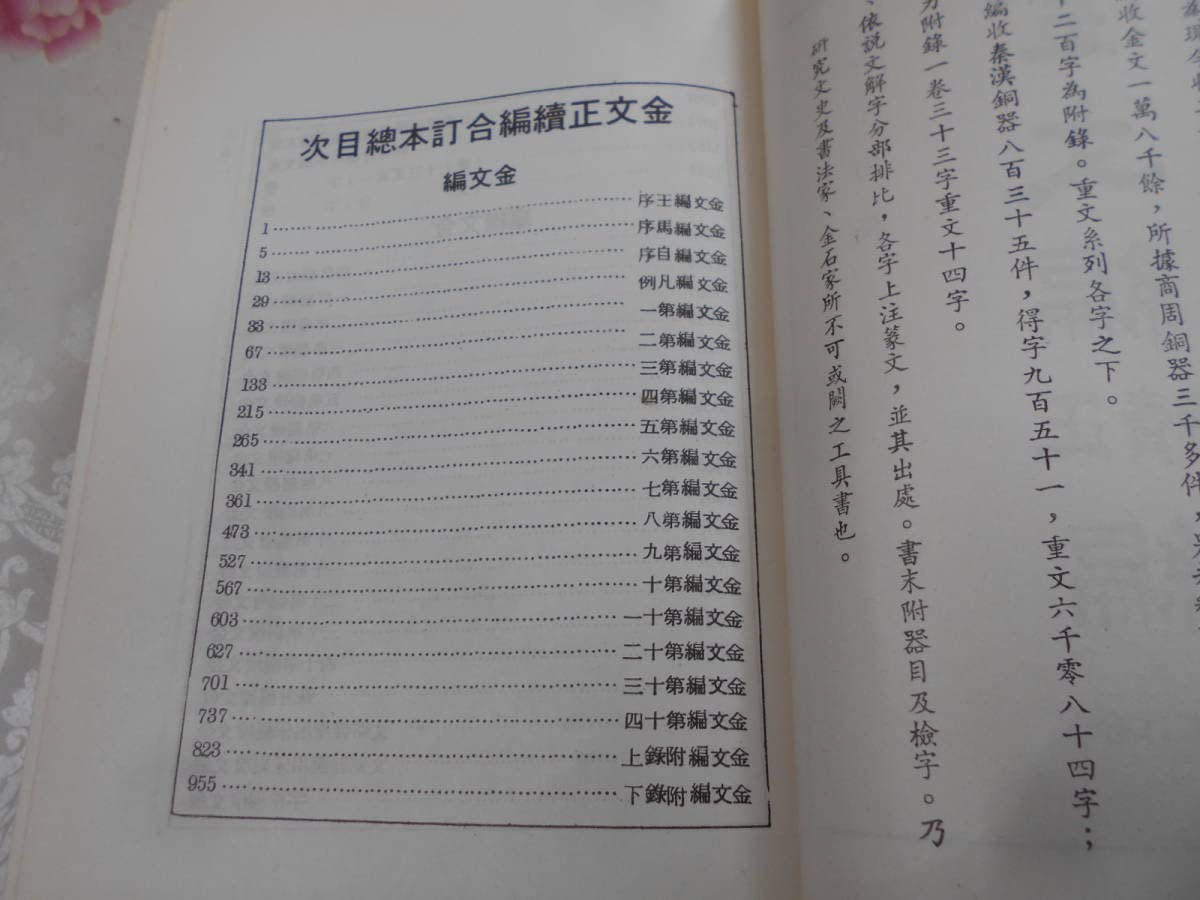 收金文一萬八千餘，所據商周銅器三千多件
二百字為附錄。重文系列各字之下。
編收秦漢銅器八百三十五件，得字九百五十一，重文六千零八十四字；
附錄一卷三十三字重文十四字。
、依說文解字分部排比，各字上注篆文，並其出處。書末附器目及檢字。乃
研究文史及書法家、金石家所不可或闕之工具書也。
金文正續編合訂本總目次
金文編
金文編王序……1
金文編馬序……5
金文編自序……13
金文編凡例……29
金文編第一……33
金文編第二……67
金文編第三……133
金文編第四……215
金文編第五……265
金文編第六……341
金文編第七……361
金文編第八……473
金文編第九……527
金文編第十……567
金文編第十一……603
金文編第十二……627
金文編第十三……701
金文編第十四……737
金文編附錄上……823
金文編附錄下……955